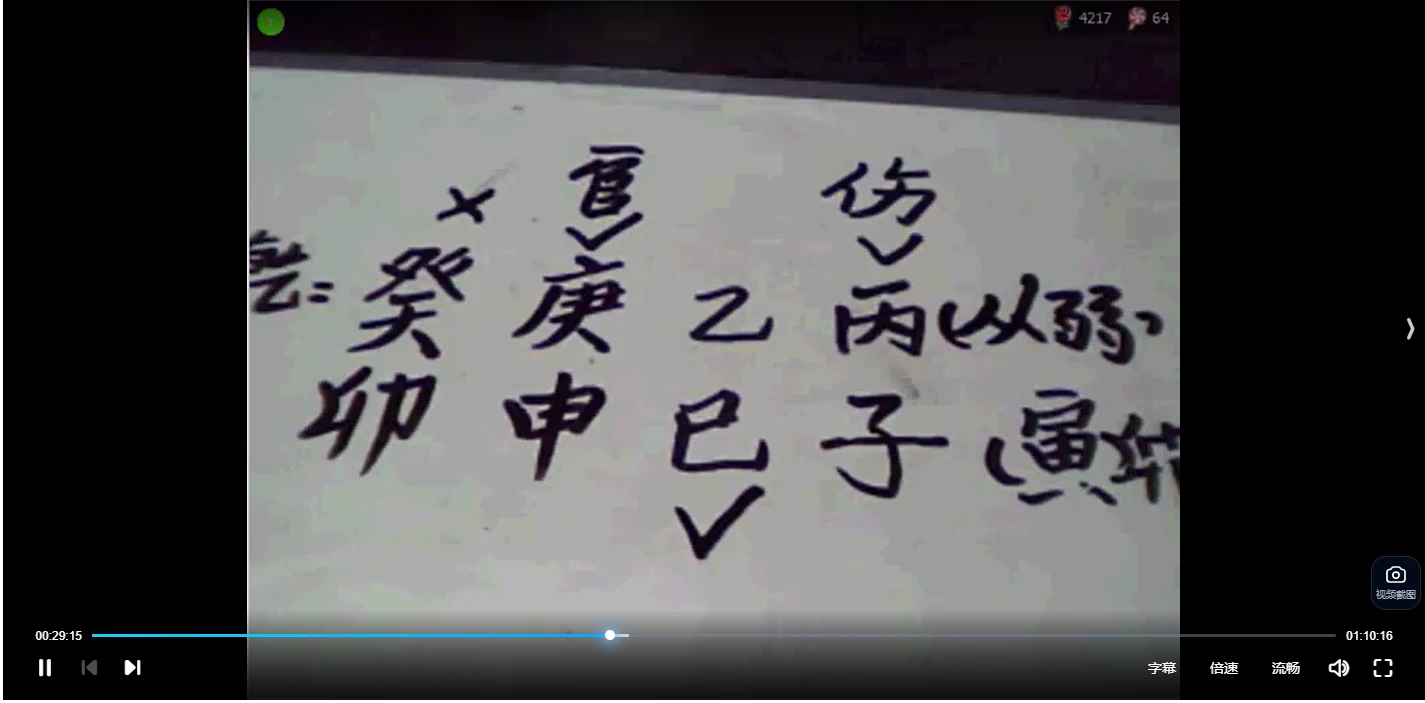 4217 64
× 官 伤
乾= 癸 庚 乙 丙 (从弱)
卯 申 巳 子 (寅卯
视频截图
00:29:15 01:10:16
字幕 倍速 流畅